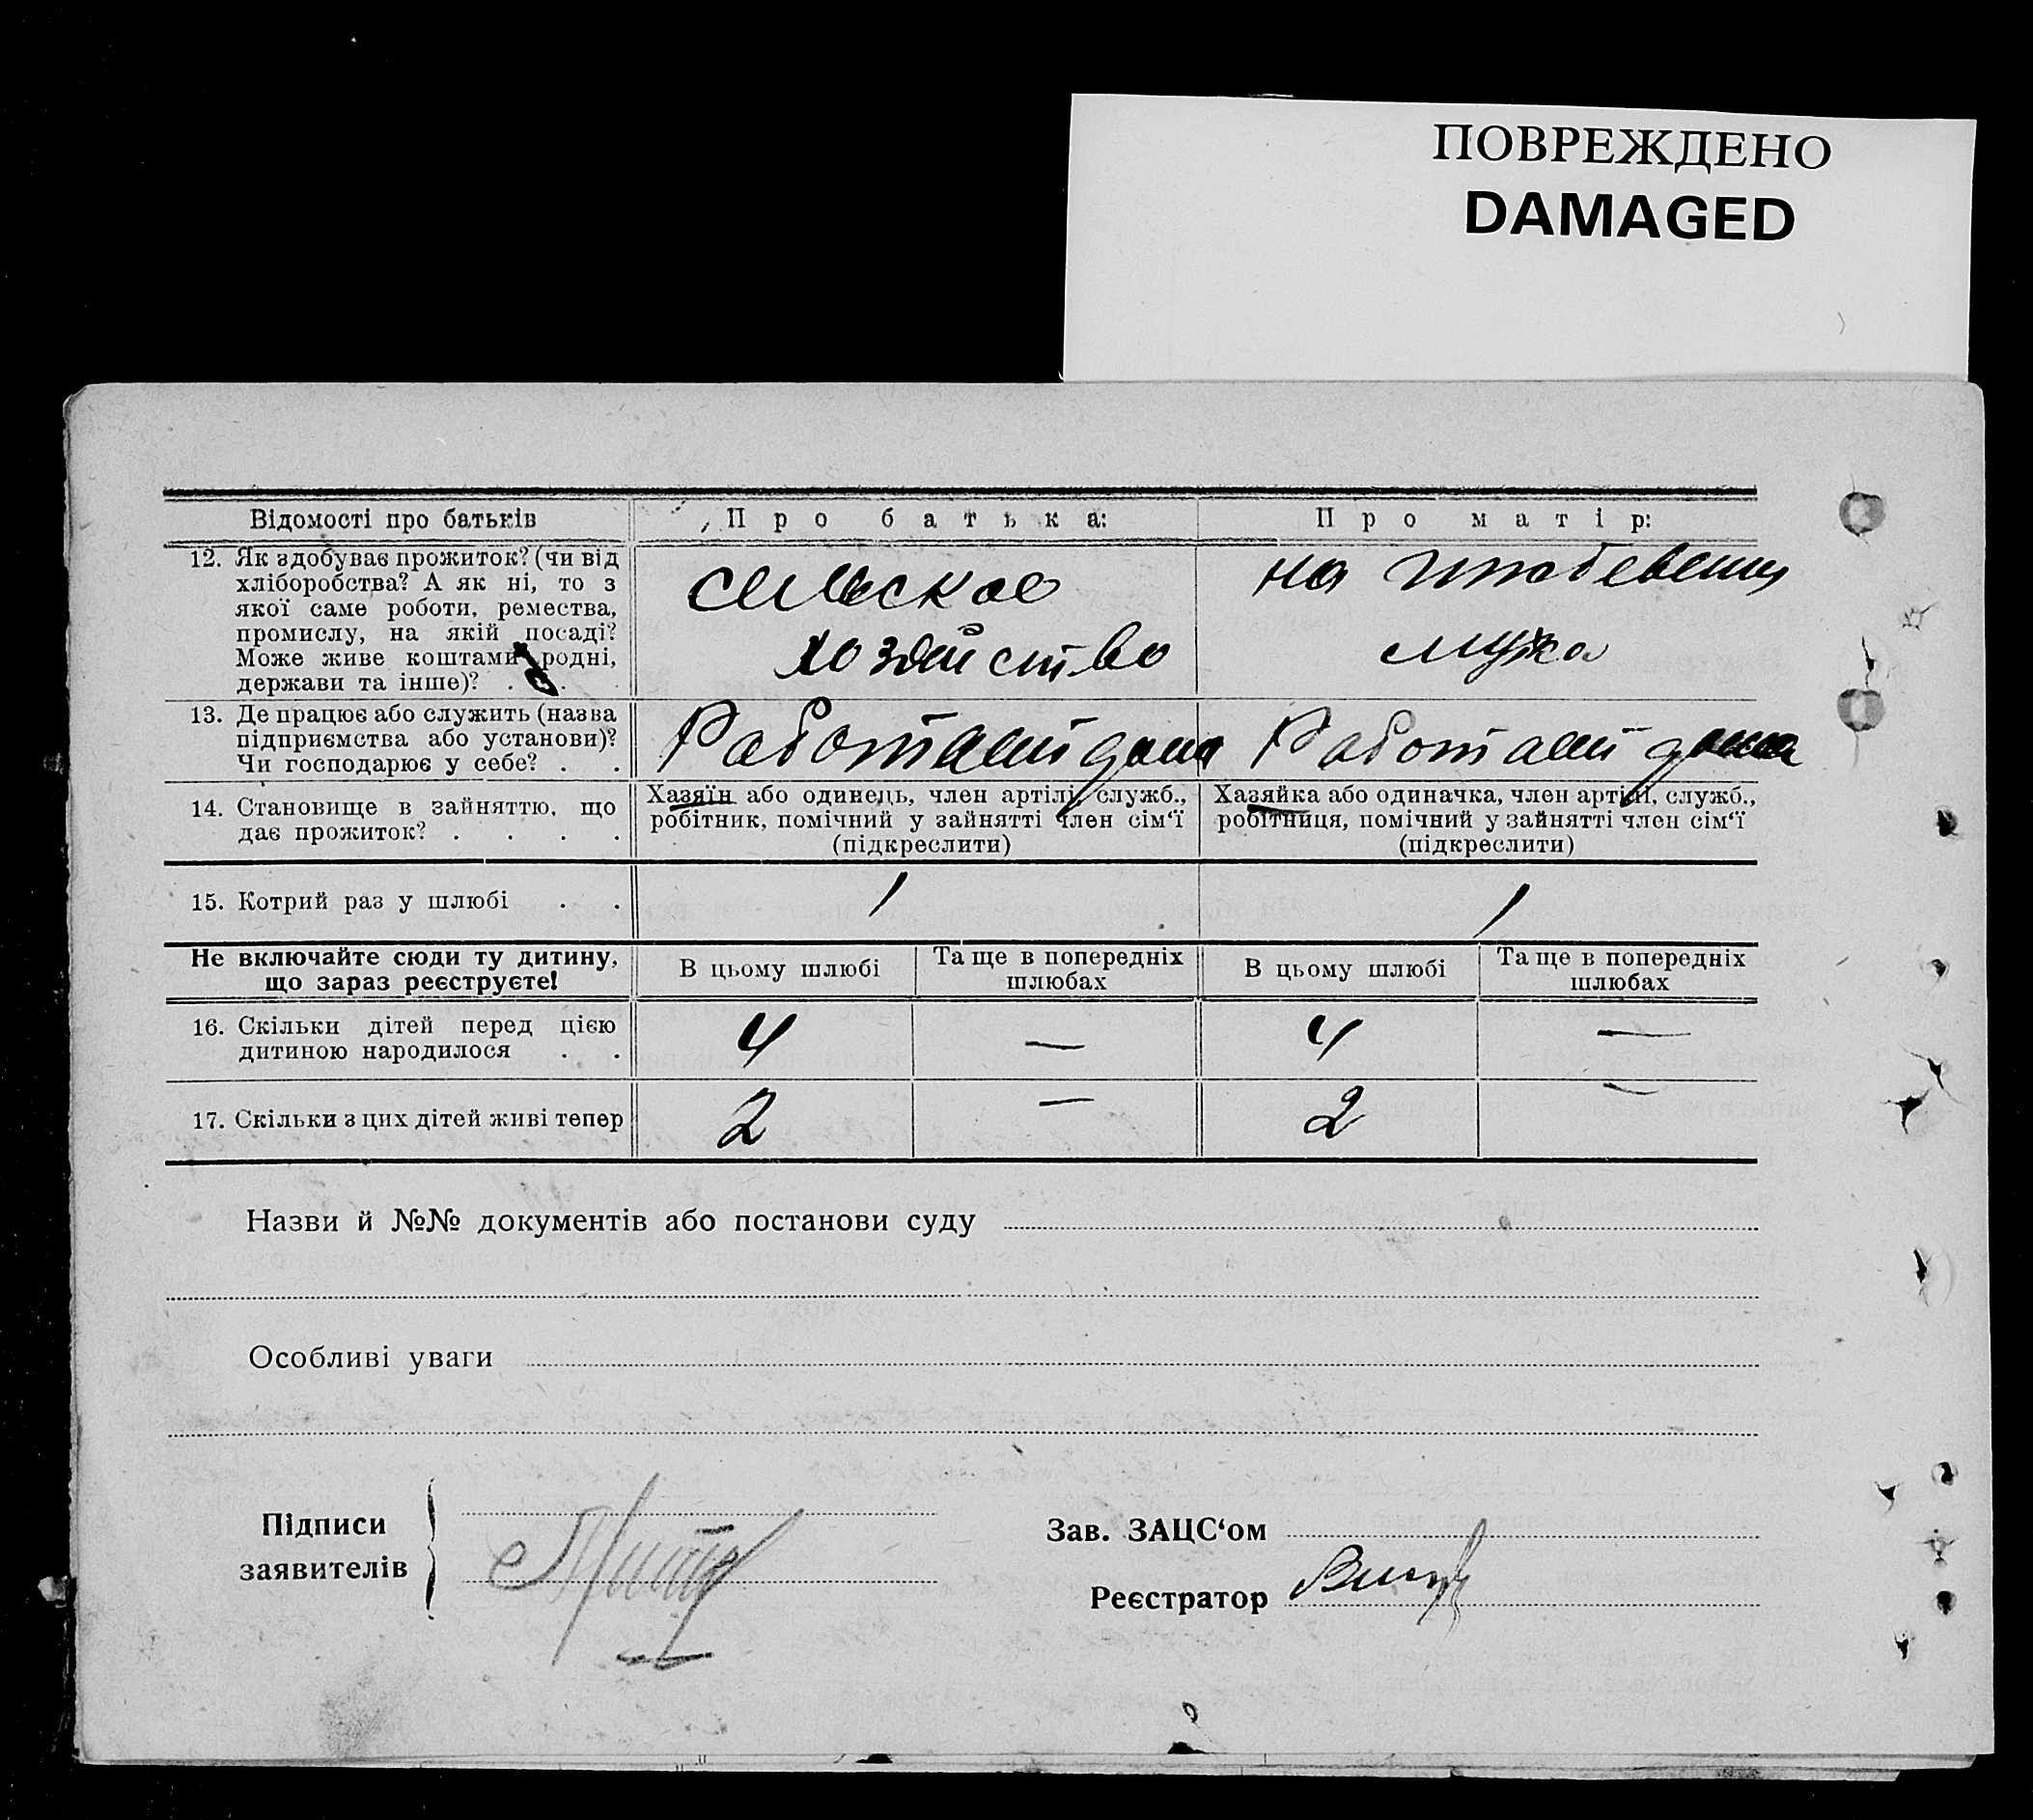 ПОВРЕЖДЕНО
DAMAGED
Відомості про батьків
Про батька:
Про матір:
12. Як здобуває прожиток? (чи від
хліборобства? А як ні, то з
якої саме роботи, ремества,
промислу, на якій посаді?
Може живе коштами родні,
держави та інше)? . .
сельское
хозяйство
на
мужа
13. Де працює або служить (назва
підприємства або установи)?
Чи господарює у себе? . .
Работает дома
Работает дома
14. Становище в зайняттю, що
дає прожиток? . . . .
Хазяїн або одинець, член артілі, служб.,
робітник, помічний у зайнятті член сім‘ї
(підкреслити)
Хазяйка або одиначка, член артілі, служб.,
робітниця, помічний у зайнятті член сім‘ї
(підкреслити)
15. Котрий раз у шлюбі . .
1
1
Не включайте сюди ту дитину,
що зараз реєструєте!
В цьому шлюбі
Та ще в попередніх
шлюбах
В цьому шлюбі
Та ще в попередніх
шлюбах
16. Скільки дітей перед цією
дитиною народилося . .
4
—
4
—
17. Скільки з цих дітей живі тепер
2
—
2
—
Назви й №№ документів або постанови суду
Особливі уваги
Підписи
заявителів
Зав. ЗАЦС‘ом
Реєстратор